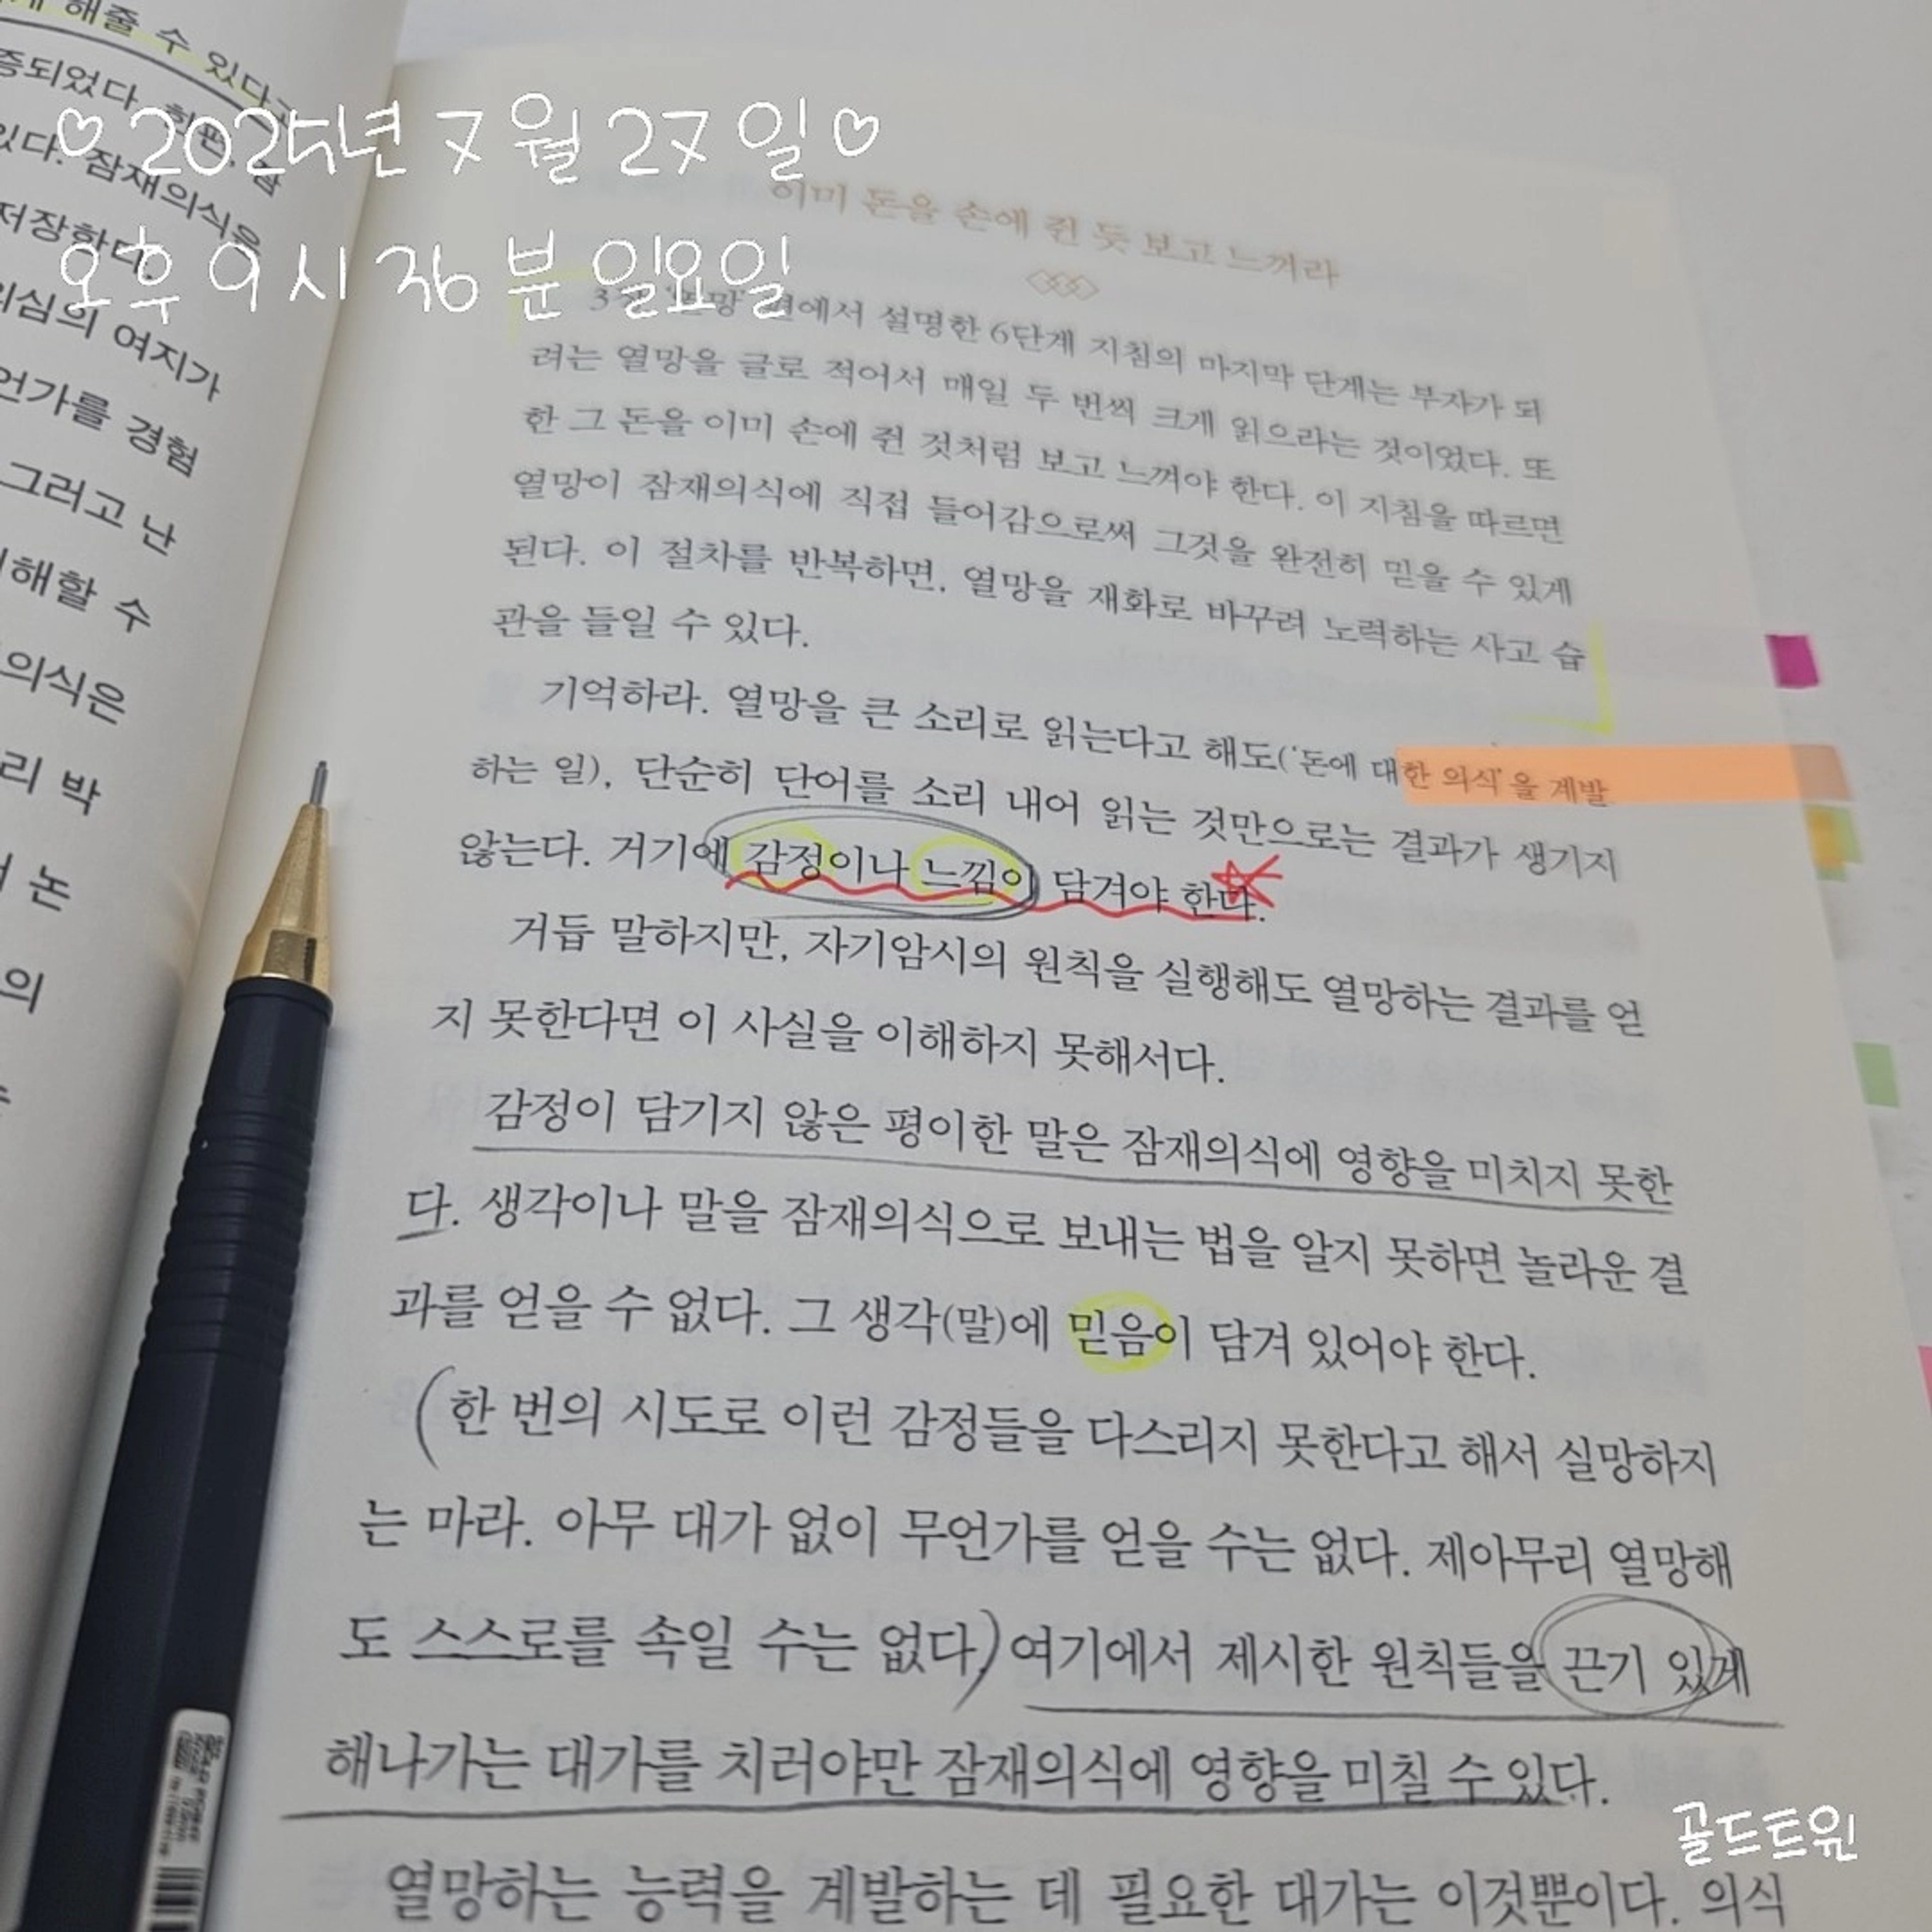 해줄 수 있다고
증되었다. 한편, 잠
있다. 잠재의식은
저장한다.
의심의 여지가
언가를 경험
그러고 난
해할 수
의식은
리 박
논
의
♡2025년 7월 27일♡
오후 9시 36분 일요일
이미 돈을 손에 쥔 듯 보고 느껴라
편에서 설명한 6단계 지침의 마지막 단계는 부자가 되
려는 열망을 글로 적어서 매일 두 번씩 크게 읽으라는 것이었다. 또
한 그 돈을 이미 손에 쥔 것처럼 보고 느껴야 한다. 이 지침을 따르면
열망이 잠재의식에 직접 들어감으로써 그것을 완전히 믿을 수 있게
된다. 이 절차를 반복하면, 열망을 재화로 바꾸려 노력하는 사고 습
관을 들일 수 있다.
기억하라. 열망을 큰 소리로 읽는다고 해도('돈에 대한 의식'을 계발
하는 일), 단순히 단어를 소리 내어 읽는 것만으로는 결과가 생기지
않는다. 거기에 감정이나 느낌이 담겨야 한다.
거듭 말하지만, 자기암시의 원칙을 실행해도 열망하는 결과를 얻
지 못한다면 이 사실을 이해하지 못해서다.
감정이 담기지 않은 평이한 말은 잠재의식에 영향을 미치지 못한
다. 생각이나 말을 잠재의식으로 보내는 법을 알지 못하면 놀라운 결
과를 얻을 수 없다. 그 생각(말)에 믿음이 담겨 있어야 한다.
(한 번의 시도로 이런 감정들을 다스리지 못한다고 해서 실망하지
는 마라. 아무 대가 없이 무언가를 얻을 수는 없다. 제아무리 열망해
도 스스로를 속일 수는 없다.) 여기에서 제시한 원칙들을 끈기 있게
해나가는 대가를 치러야만 잠재의식에 영향을 미칠 수 있다.
열망하는 능력을 계발하는 데 필요한 대가는 이것뿐이다. 의식
골드트윈